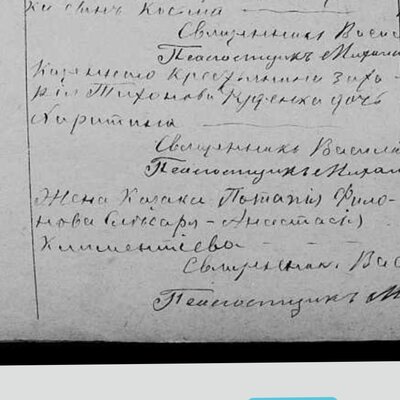 ка сынъ Косьма
Священникъ Васи
Псаломщикъ Михаи
Казеннаго крестьянина Заха-
рія Тихонова Руденка дочь
Харитина
Священникъ Василі
Псаломщикъ Михаи
Жена Козака Потапія Фило-
нова Слюсаря - Анастасія
Климентіева
Священник. Вас
Псаломщикъ М